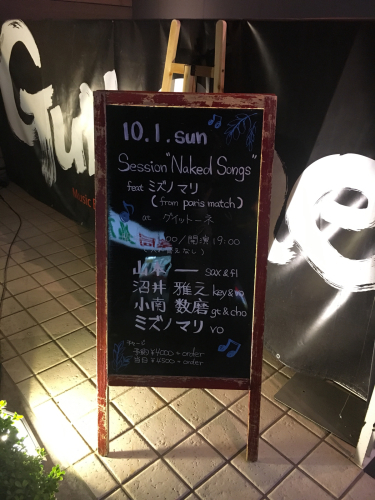 Gui
Music
e
10.1.sun
Session "Naked Songs"
feat ミズノマリ
(from paris match)
at グイットーネ
00/開演 19:00
山本 一 sax & fl
沼井 雅之 key & vo
小南 数磨 gt & cho
ミズノマリ vo
チャージ
予約 ¥4000+order
当日 ¥4500+order